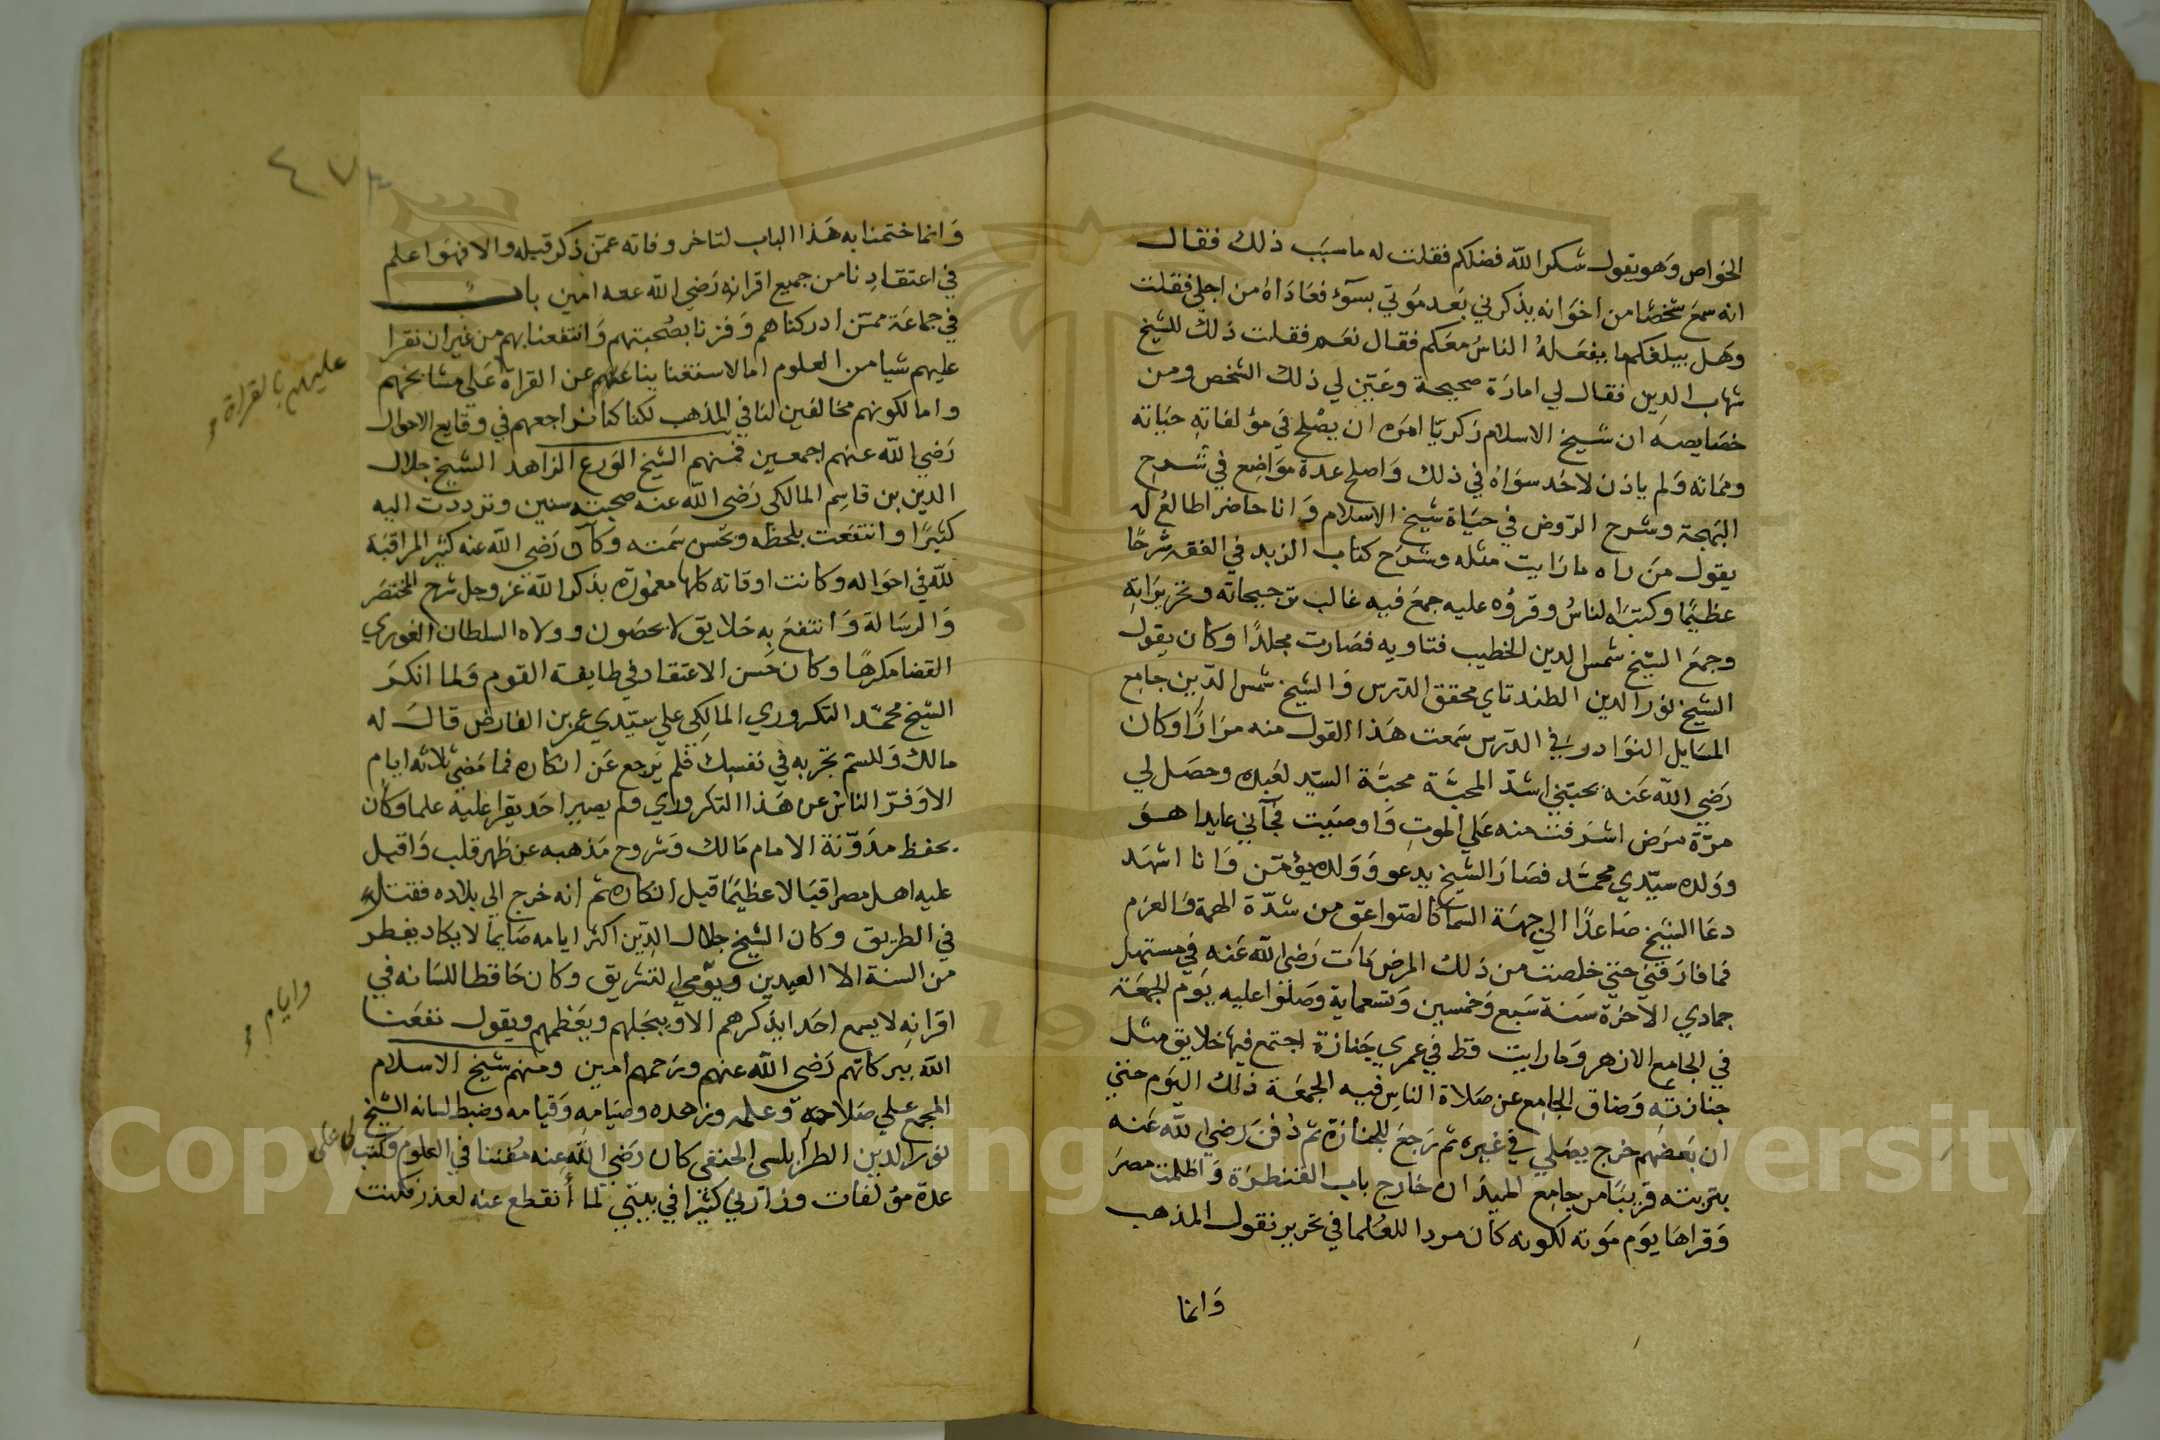 الخواص وهو يقول شكر الله فضلكم فقلت له ما سبب ذلك فقال
انه سمع شخصا من اخوانه يذكرني بعد موتي بسوء فعاداه من اجلي فقلت
وهل يبلغكم ما يفعله الناس معكم فقال نعم فقلت ذلك للشيخ
شهاب الدين فقال لي امارة صحيحة وعين لي ذلك الشخص ومن
خصايصه ان شيخ الاسلام زكريا امره ان يصلح في مؤلفاته حياته
ومماته ولم ياذن لاحد سواه في ذلك واصلح عدة مواضع في شرح
البهجة وشرح الروض في حياة شيخ الاسلام وانا حاضر اطالع له
يقول من راه ما رايت مثله وشرح كتاب الزبد في الفقه شرحا
عظيما وكتبه الناس وقروه عليه جمع فيه غالب ترجيحاته وتحريراته
وجمع الشيخ شمس الدين الخطيب فتاويه فصارت مجلدا وكان يقول
الشيخ نور الدين الطندتاي محقق الدرس والشيخ شمس الدين جامع
المسايل النوادر في الدرس سمعت هذا القول منه مرارا وكان
رضي الله عنه يحبني اشد المحبة محبة السيد لعبده وحصل لي
مرة مرض اشرفت منه علي الموت واوصيت فجآني عايدا هو
وولده سيدي محمد فصار الشيخ يدعو وولده يؤمن وانا اشهد
دعا الشيخ صاعدا الي جهة السما كالصواعق من شدة الهمة والعزم
فما فارقني حتي خلصت من ذلك المرض مات رضي الله عنه في مستهل
جمادي الآخرة سنة سبع وخمسين وتسعماية وصلوا عليه يوم الجمعة
في الجامع الازهر وما رايت قط في عمري جنازة اجتمع فيها خلايق مثل
جنازته وضاق الجامع عن صلاة الناس فيه الجمعة ذلك اليوم حتي
ان بعضهم خرج يصلي في غيره ثم رجع للجنازة ثم دفن رضي الله عنه
بتربته قريبا من جامع الميدان خارج باب القنطرة واظلمت مصر
وقراها يوم موته لكونه كان مردا للعلما في تحرير نقول المذهب
وانما
٤٧٣
وانما ختمنا به هذا الباب لتاخر وفاته عمن ذكر قبله والا فهو اعلم
في اعتقادنا من جميع اقرانه رضي الله عنه امين باب
في جماعة ممن ادركناهم وفزنا بصحبتهم وانتفعنا بهم من غير ان نقرا
عليهم شيا من العلوم اما لاستغنا بنا عنهم عن القراة علي مشايخهم
عليهم بالقراة
واما لكونهم مخالفين لنا في المذهب لكنا كنا نراجعهم في وقايع الاحوال
رضي الله عنهم اجمعين فمنهم الشيخ الورع الزاهد الشيخ جلال
الدين بن قاسم المالكي رضي الله عنه صحبته سنين وترددت اليه
كثيرا وانتفعت بلحظه وحسن سمته وكان رضي الله عنه كثير المراقبة
لله في احواله وكانت اوقاته كلها معمورة بذكر الله عز وجل شرح المختصر
والرسالة وانتفع به خلايق لا يحصون وولاه السلطان الغوري
القضا مكرها وكان حسن الاعتقاد في طايفة القوم ولما انكر
الشيخ محمد التكروري المالكي علي سيدي عمر بن الفارض قال له
مالك وللسم تجربه في نفسك فلم يرجع عن انكاره فما مضي ثلاثه ايام
الا وفر الناس عن هذا التكروري ولم يصير احد يقرا عليه علما وكان
يحفظ مدونة الامام مالك وشروح مذهبه عن ظهر قلب واقبل
عليه اهل مصر اقبالا عظيما قبل انكاره ثم انه خرج الي بلاده فقتل
في الطريق وكان الشيخ جلال الدين اكثر ايامه صايما لا يكاد يفطر
من السنة الا العيدين ويومي التشريق وكان حافظا للسانه في
وايام
اقرانه لا يسمع احدا يذكرهم الا ويبجلهم ويعظمهم ويقول نفعنا
الله ببركاتهم رضي الله عنهم ورحمهم امين ومنهم شيخ الاسلام
المجمع علي صلاحه وعلمه وزهده وصيامه وقيامه وضبط لسانه الشيخ
نور الدين الطرابلسي الحنفي كان رضي الله عنه مفننا في العلوم وكتب
عدة مؤلفات وزارني كثيرا في بيتي لما أنقطع عنه لعذر فكنت
Copyright © King Saud University